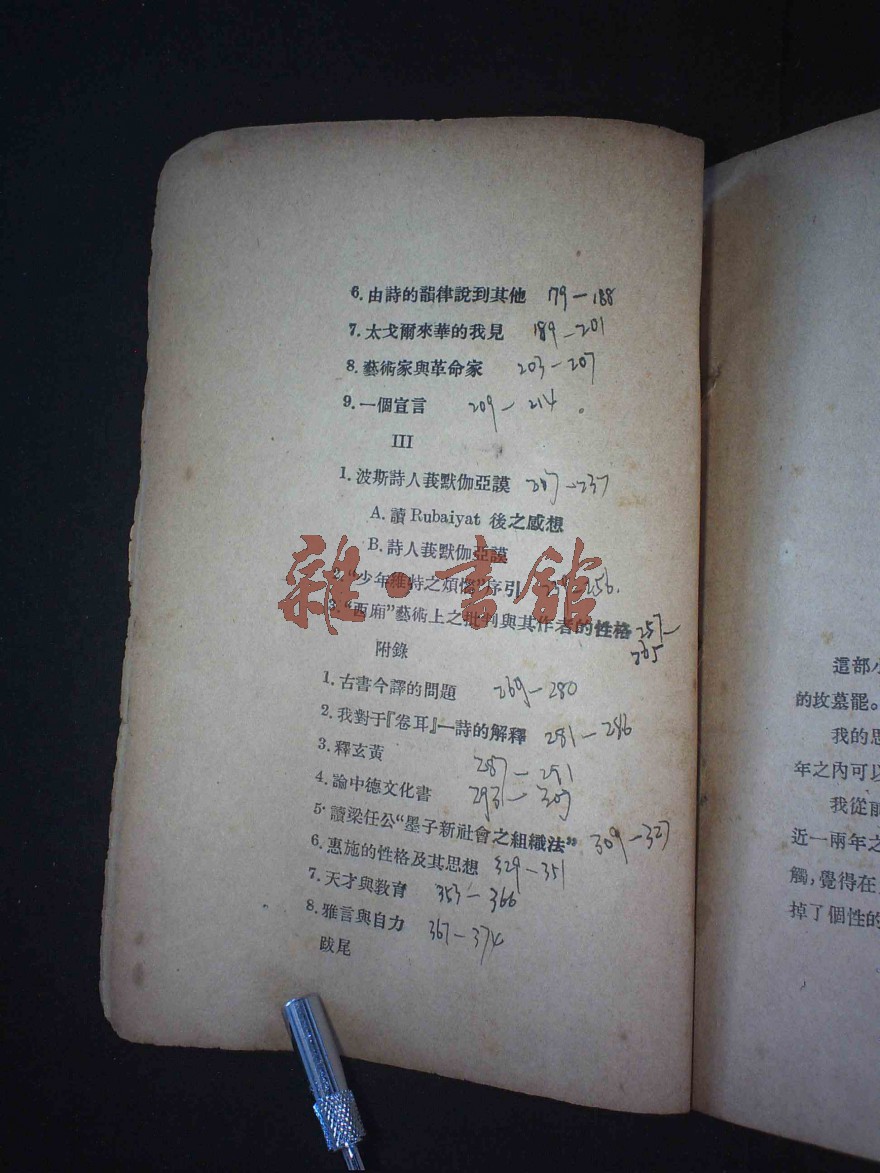 6. 由詩的韻律說到其他 179—188
7. 太戈爾來華的我見 189—201
8. 藝術家與革命家 203—207
9. 一個宣言 209—214
III
1. 波斯詩人莪默伽亞謨 —237
A. 讀 Rubaiyat 後之感想
B. 詩人莪默伽亞謨
2. “少年維特之煩惱”序引 —256.
3. “西廂”藝術上之批判與其作者的性格 257—
265
附錄
1. 古書今譯的問題 269—280
2. 我對于『卷耳』一詩的解釋 281—286
3. 釋玄黃 287—291
4. 論中德文化書 293—307
5. 讀梁任公“墨子新社會之組織法” 309—327
6. 惠施的性格及其思想 329—351
7. 天才與教育 353—366
8. 雅言與自力 367—374
跋尾
雜·書館
這部小
的坟墓罷。
我的思
年之內可以
我從前
近一兩年之
觸,覺得在
掉了個性的